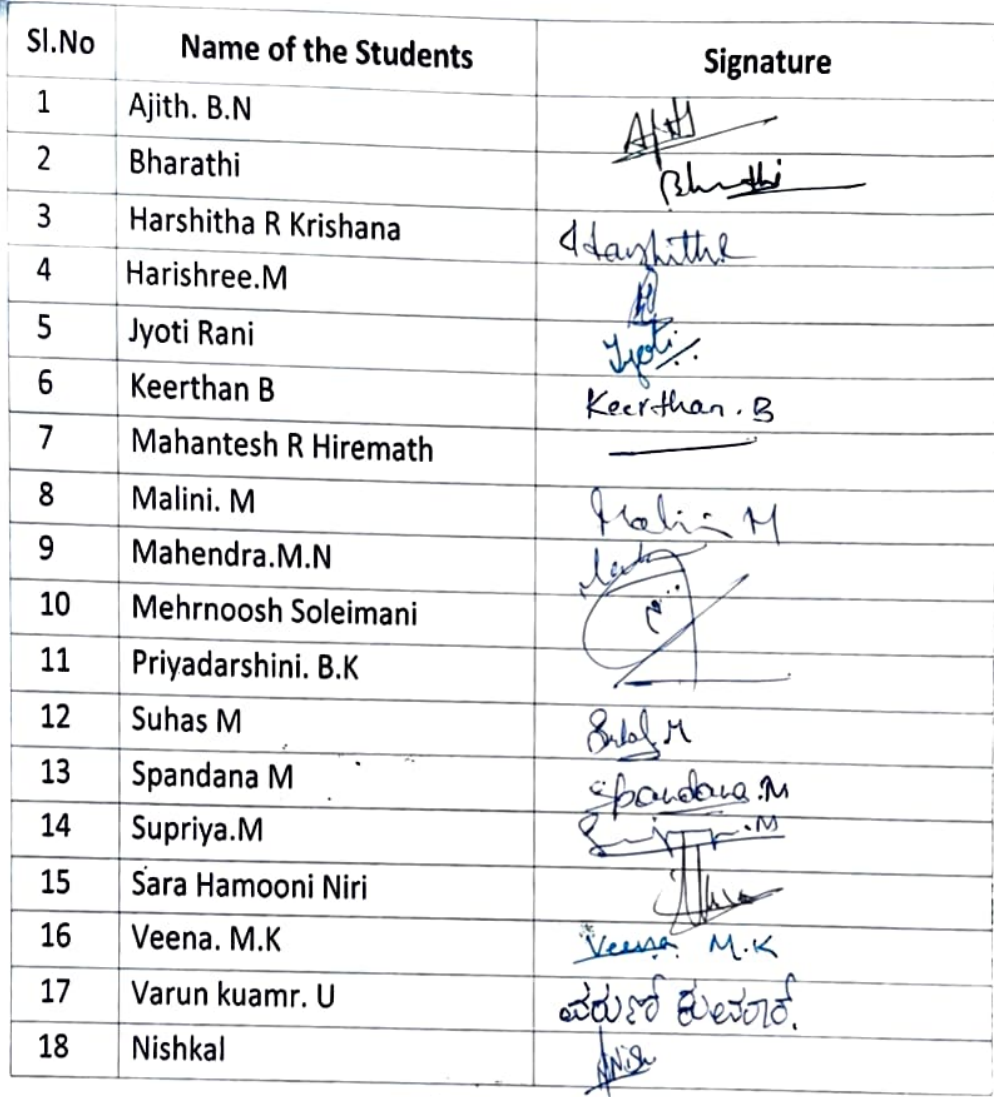 Sl.No Name of the Students Signature
1 Ajith. B.N Ajith
2 Bharathi Bharathi
3 Harshitha R Krishana Harshitha
4 Harishree.M
5 Jyoti Rani Jyoti
6 Keerthan B Keerthan. B
7 Mahantesh R Hiremath
8 Malini. M Malini M
9 Mahendra.M.N
10 Mehrnoosh Soleimani
11 Priyadarshini. B.K
12 Suhas M M
13 Spandana M Spandana.M
14 Supriya.M .M
15 Sara Hamooni Niri
16 Veena. M.K Veena M.K
17 Varun kuamr. U ವರುಣ್ ಕುಮಾರ್.
18 Nishkal Nish